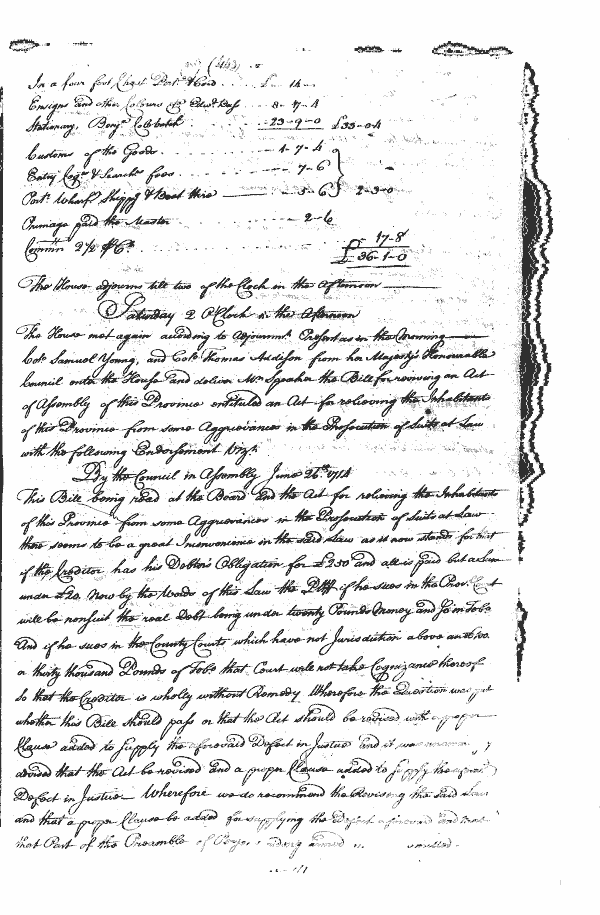 (443)
In a four foot Chest Port. & Cord £ - 14 -
Ensigns and other Colours 8 - 7 - 4
Stationary, Benj. 23 - 9 - 0 £33 - 0 4
Customs of the Goods 1 - 7 - 4
Entry Coq. & Search. fees 7 - 6
Port. Wharf. Shipp. & Boat hire 5 - 6 2 - 3 - 0
Primage paid the Master 2 - 6
Commn. 2 1/2 17 - 8
£ 36 - 1 - 0
The House adjourns till two of the Clock in the Afternoon
Saturday 2 O'Clock in the Afternoon
The House met again according to Adjournmt. Present as in the Morning
Colo. Samuel Young, and Colo. Thomas Addison from her Majesty's Honourable
Council enter the House and deliver Mr. Speaker the Bill for reviving an Act
of Assembly of this Province entituled an Act for relieving the Inhabitants
of this Province from some Aggrievances in the Prosecution of Suits at Law
with the following Endorsement Vizt.
By the Council in Assembly June 26th. 1714
This Bill being read at the Board and the Act for relieving the Inhabitants
of this Province from some Aggrievances in the Prosecution of Suits at Law
there seems to be a great Inconvenience in the said Law as it now stands for that
if the Creditor has his Debtor's Obligation for £250 and all is paid but a Sum
under £20. Now by the Words of this Law the Pltff if he sues in the Prov. Court
will be nonsuit the real Debt being under twenty Pounds Money and
And if he sues in the County Courts which have not Jurisdiction above
or thirty thousand Pounds of Tobo. that Court will not take Cognizance thereof
So that the Creditor is wholly without Remedy Wherefore the Question was put
whether this Bill should pass or that the Act should be revised with a proper
Clause added to Supply the aforesaid Defect in Justice and it was
advised that the Act be revised and a proper Clause added to Supply the
Defect in Justice Wherefore we do recommend the Revising the said Law
and that a proper Clause be added for supplying the Defect aforesaid and that
that Part of the Preamble of